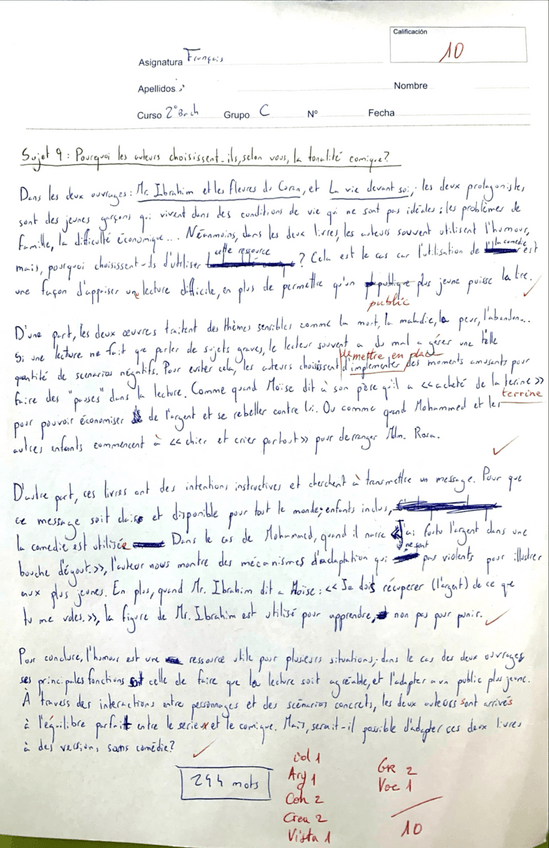 Calificación
10
Asignatura Français
Apellidos
Nombre
Curso 2º Bach Grupo C Nº Fecha
Sujet 9 : Pourquoi les auteurs choisissent-ils, selon vous, la tonalité comique?
Dans les deux ouvrages: Mr. Ibrahim et les fleurs du Coran, et La vie devant soi; les deux protagonistes
sont des jeunes garçons qui vivent dans des conditions de vie qui ne sont pas idéales: les problèmes de
famille, la difficulté économique... Néanmoins, dans les deux livres, les auteurs souvent utilisent l'humour,
mais, pourquoi choisissent-ils d'utiliser cette ressource ? Cela est le cas car l'utilisation de la comédie est
une façon d'appaiser une lecture difficile, en plus de permettre qu'un publique plus jeune puisse la lire.
public
D'une part, les deux œuvres traitent des thèmes sensibles comme la mort, la maladie, la peur, l'abandon...
Si une lecture ne fait que parler de sujets graves, le lecteur souvent a du mal a gérer une telle
quantité de scenarios négatifs. Pour eviter cela, les auteurs choisissent d'implementer des moments amusants pour
mettre en place
faire des "pauses" dans la lecture. Comme quand Moïse dit à son père qu'il a <<acheté de la terine>>
terrine
pour pouvoir économiser de l'argent et se rebeller contre lui. Ou comme quand Mohammed et les
autres enfants commencent à <<chier et crier partout>> pour derranger Mm. Rosa.
D'autre part, ces livres ont des intentions instructives et cherchent à transmettre un message. Pour que
ce message soit claire et disponible pour tout le monde, enfants inclus,
la comedie est utilisée Dans le cas de Mohammed, quand il narre <<J'ai foutu l'argent dans une
bouche dégout.>>, l'auteur nous montre des mécanismes d'adaptation qui ne sont pas violents pour illustrer
aux plus jeunes. En plus, quand Mr. Ibrahim dit a Moïse: <<Ja dois récuperer (l'argent) de ce que
tu me voles.>>, la figure de Mr. Ibrahim est utilisé pour apprendre, non pas pour punir.
Pour conclure, l'humour est une ressource utile pour plusieurs situations; dans le cas des deux ouvrages
ses principales fonctions est celle de faire que la lecture soit agréable, et l'adapter a un public plus jeune.
À travers des interactions entre personnages et des scénarios concrets, les deux auteurs sont arrivés
à l'équilibre parfait entre le serieux et le comique. Mais, serait-il possible d'adapter ces deux livres
à des versions sans comédie?
244 mots
Arg 1
Coh 2
Crea 2
Vista 1
GR 2
Voc 1
10